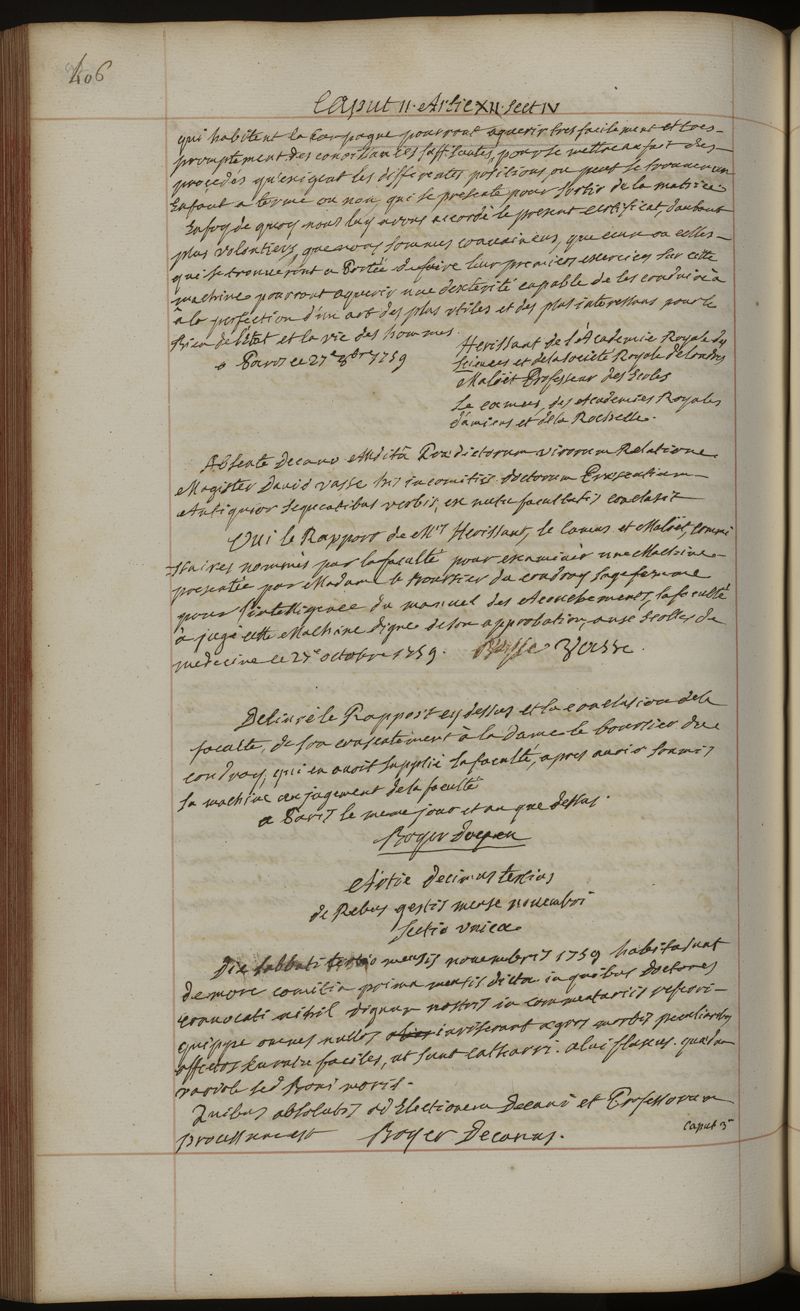 406
Caput II. Artic XII. Sect IV
qui habitent la Campagne pourront aquerir tres facilement et tres-
promptement des conoissances suffisantes, pour se mettre au fait des-
procédés qu'exigent les différentes positions, ou peut se trouver un
Enfant a terme ou non, qui se présente pour sortir de la matrice
En foy de quoy nous luy avons accordé le present certificat, d'autant
plus volontiers, que nous sommes convaincus, que ceux ou celles-
qui se trouveront a Portée de faire leur premiers exercices sur cette
machine pourront aquerir une dexterité capable de les conduire à
à la perfection d'un art des plus utiles et des plus interessans pour le
Bien de l'état et la vie des hommes.
a Paris ce 27e 8bre 1759
Herissant de l'Académie Royale des
Sciences et de la Société Royale de Londres
Maloët Professeur des Ecoles
Le camus, des Academies Royales
d'amiens et de la Rochelle.
Absente Decano Audità Prædictorum virorum Relatione
Magister David Vasse his in comitiis doctorum Præsentium
Antiquior sequentibus verbis, ex nutu facultatis conclusit
Oui le Rapport de Mrs Herissant, le Camus et Maloët, Commi
ssaires nommés par la faculté pour examiner une Machine-
presentée par Madame le Boursier du coudray sagefemme
pour l'intelligence du manuel des Accouchements, la faculté
à jugé cette Machine digne de son approbation, aux Ecolles de
medecine ce 27e octobre 1759. Vasse.
Delivré le Rapport cy dessus et la conclusion de la
faculté, de son consentement à la Dame le boursier du
coudray, qui en avoit supplié la faculté, apres avoir soumis
sa machine au jugement de la faculté
a Paris le meme jour et an que dessus.
Boyer doyen
Artic decimus tertius
de Rebus gestis mense novembri
Sectio unica
Die sabbati tertio mensis novembris 1759 habita sunt
de more comitia prima mensis dicta in quibus doctores
convocati nihil dignum nostris in commentariis referri-
quippe omnes nullos inviserant ægros morbis peculiaribus
affectos curatu faciles, ut sunt catharri. alvi fluxus. quædam
variolæ sed Boni moris.
Quibus absolutis ad Electionem Decani et Professorum
processum est Boyer Decanus.
Caput 3